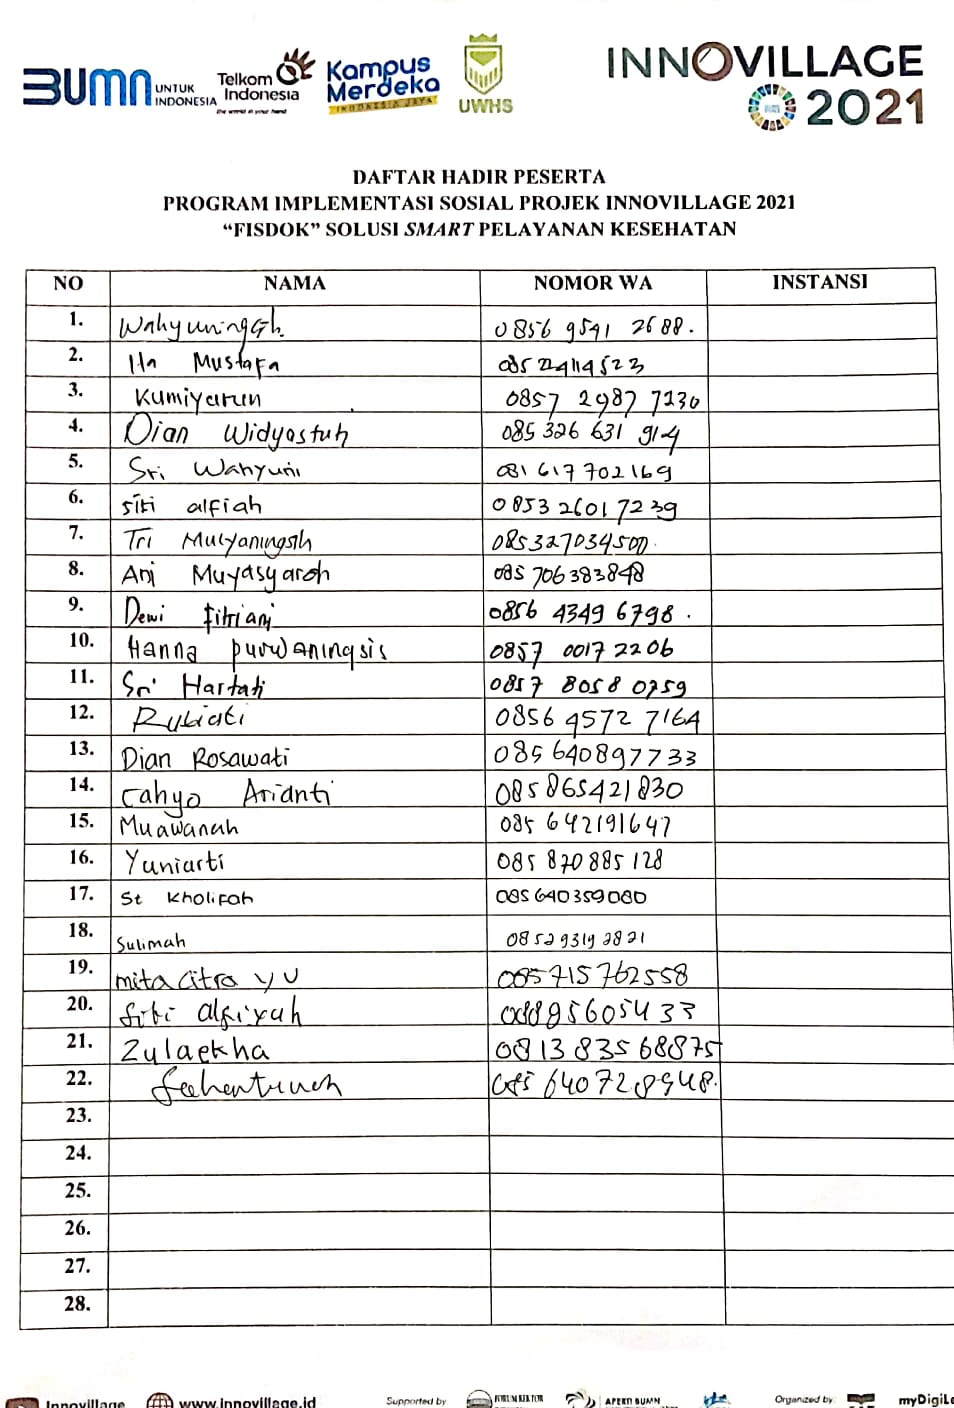 BUMN UNTUK INDONESIA
Telkom Indonesia
the world in your hand
Kampus Merdeka
INDONESIA JAYA
UWHS
INNOVILLAGE 2021
DAFTAR HADIR PESERTA
PROGRAM IMPLEMENTASI SOSIAL PROJEK INNOVILLAGE 2021
“FISDOK” SOLUSI SMART PELAYANAN KESEHATAN
NO NAMA NOMOR WA INSTANSI
1. Wahyuningsih 0856 9541 2688.
2. Mustafa
3. Kumiyatun 0857 2987 7230
4. Dian Widyastuti 085 326 631 914
5. Sri Wahyuni 081 617 702 169
6. Siti alfiah 0853 2601 7239
7. Tri Mulyaningsih 085327034500.
8. Ani Muyasyaroh 085 706 383848
9. Dewi Fitriani 0856 4349 6798.
10. Hanna purwaningsis 0857 0017 2206
11. Sri Hartati 0857 8058 0759
12. Rubiati 0856 4572 7164
13. Dian Rosawati 085 640897733
14. Cahyo Arianti 085865421830
15. Muawanah 085 642191647
16. Yuniarti 085 870 885 128
17. St Kholifah 085 640 359 080
18. Sulimah 0852 9319 2821
19. mita citra y u 085715762558
20. Siti alfiyah
21. Zulaekha 0813 83568875
22. 085 640728948.
23.
24.
25.
26.
27.
28.
Innovillage www.innovillage.id Supported by FORUM REKTOR APERTI BUMN Organized by: